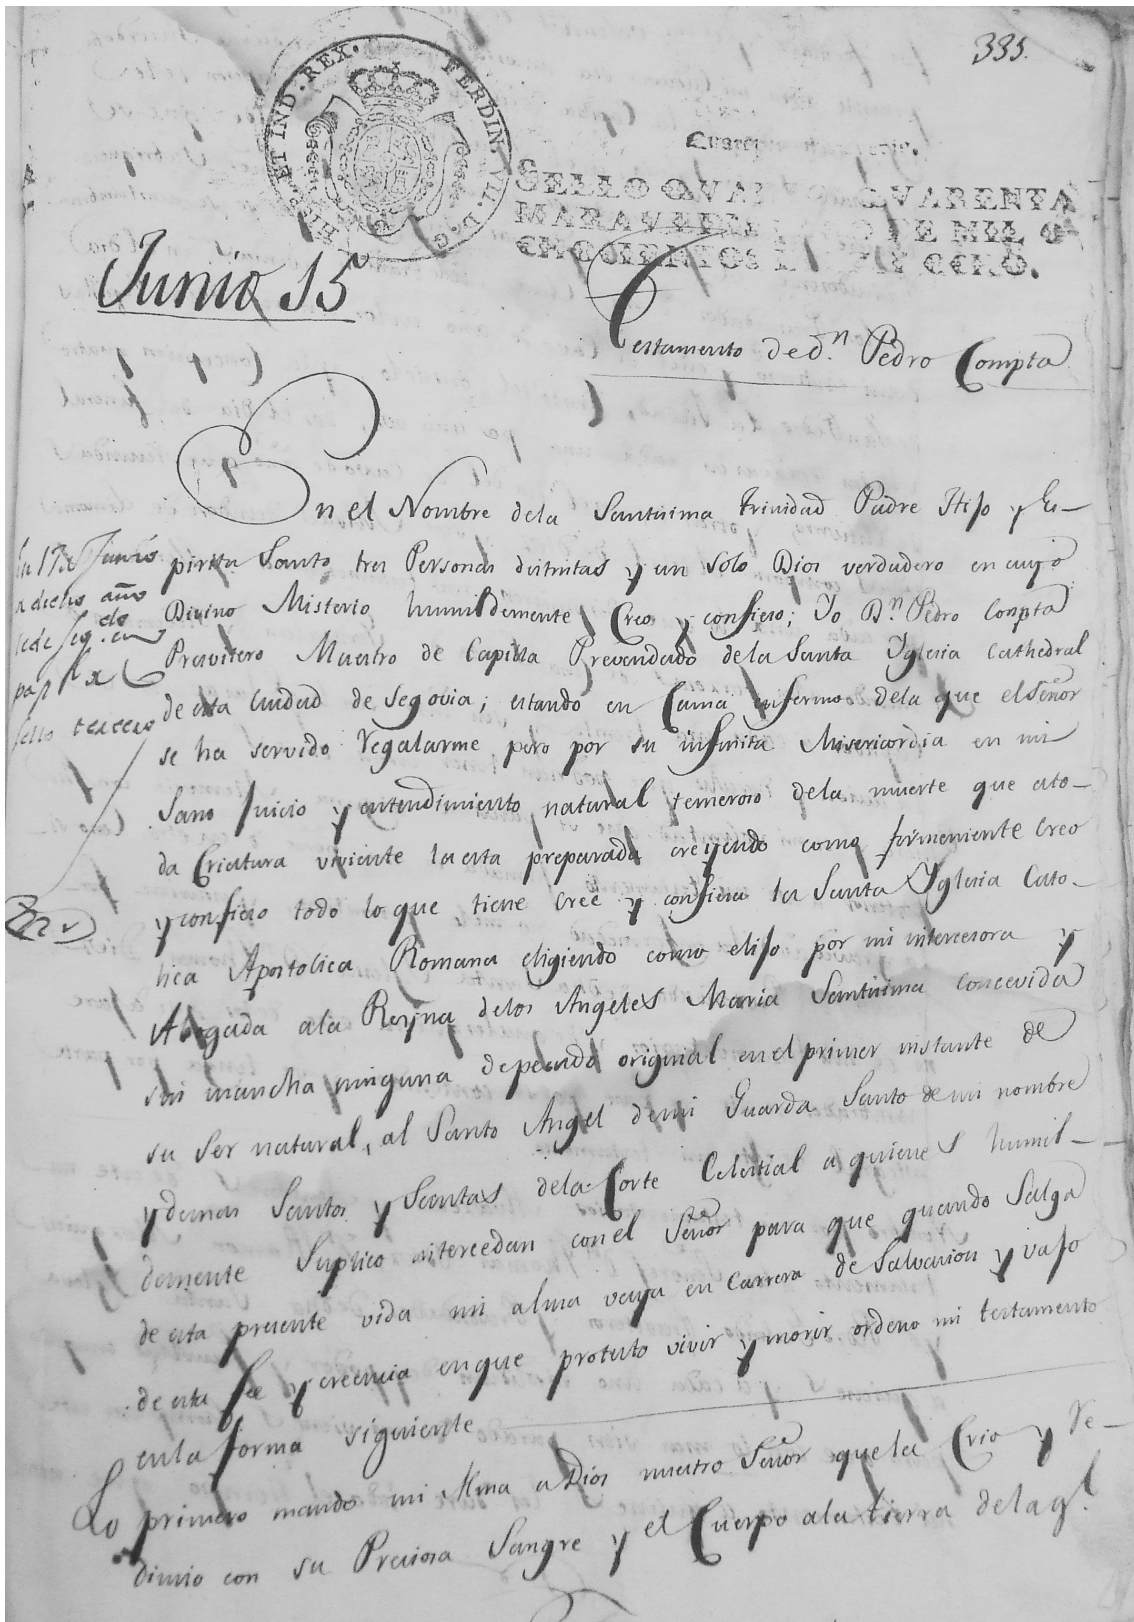 335.
HISP. ET IND. REX. FERDIN. VII. D. G.
SELLO QVARTO QVARENTA
MARAVEDIS DE MIL O
CHOCIENTOS Y OCHO.
Junio 15
Testamento de d.n Pedro Compta
En el Nombre dela Santisima trinidad Padre Hijo y Es-
piritu Santo tres Personas distintas y un solo Dios verdadero en cuyo
Divino Misterio humildemente Creo y confieso; Yo D.n Pedro Compta
Presvitero Maestro de Capilla Prevendado dela Santa Yglesia Cathedral
de esta Ciudad de Segovia; estando en Cama enfermo dela que el señor
se ha servido regalarme pero por su infinita Misericordia en mi
Sano Juicio y entendimiento natural temeroso dela muerte que ato-
da Criatura viviente la esta preparada creyendo como firmemente Creo
y confieso todo lo que tiene cree y confiesa la Santa Yglesia Cato-
lica Apostolica Romana eligiendo como elijo por mi intercesora y
Abogada ala Reyna delos Angeles Maria Santisima concevida
sin mancha ninguna de pecado original en el primer instante de
su ser natural, al Santo Angel de mi Guarda Santo de mi nombre
y demas Santos y Santas dela Corte Celestial a quienes humil-
demente Suplico intercedan con el Señor para que quando Salga
de esta presente vida mi alma vaya en Carrera de Salvacion y vajo
de esta fee y creencia en que protesto vivir y morir ordeno mi testamento
en la forma siguiente
Lo primero mando mi Alma a Dios nuestro Señor que la Crio y re-
dimio con su Preciosa Sangre y el Cuerpo ala tierra dela q.l
En 17 de Junio
a dicho año
sello tercero